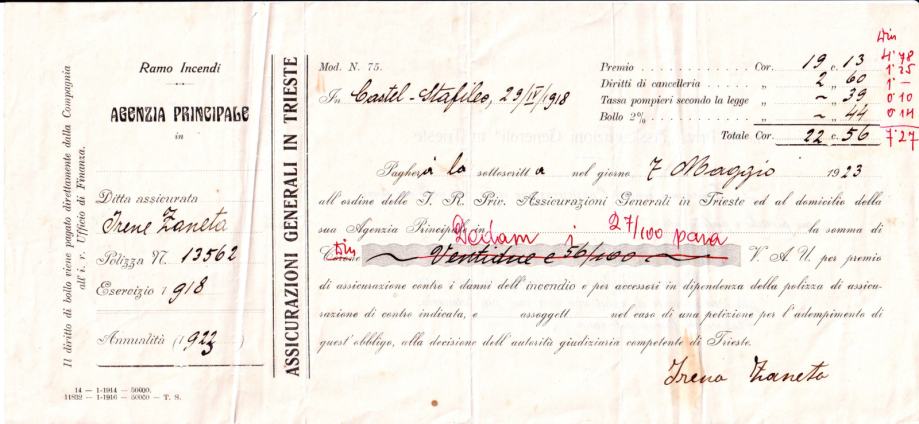 Il diritto di bollo viene pagato direttamente dalla Compagnia
all'i. r. Ufficio di Finanza.
Ramo Incendi
AGENZIA PRINCIPALE
in
Ditta assicurata
Irene Zaneta
Polizza N. 13562
Esercizio 1918
Annualità (1923
14 — 1-1914 — 50000.
11832 — 1-1916 — 50000 — T. S.
ASSICURAZIONI GENERALI IN TRIESTE
Mod. N. 75.
In Castel-Stafileo, 29/IV/1918
Din
Premio Cor. 19 c. 13 4·78
Diritti di cancelleria „ 2 „ 60 1·25
1·—
Tassa pompieri secondo la legge „ ~ „ 39 0·10
Bollo 2% „ ~ „ 44 0·14
Totale Cor. 22 c. 56 7·27
Pagherà la sottoscritta nel giorno 7 Maggio 1923
all'ordine delle I. R. Priv. Assicurazioni Generali in Trieste ed al domicilio della
sua Agenzia Principale in la somma di
Sedam i 27/100 para
Din
Corone Ventidue e 56/100 V. A. U. per premio
di assicurazione contro i danni dell'incendio e per accessori in dipendenza della polizza di assicu-
razione di contro indicata, e assoggett nel caso di una petizione per l'adempimento di
quest'obbligo, alla decisione dell'autorità giudiziaria competente di Trieste.
Irena Zaneta